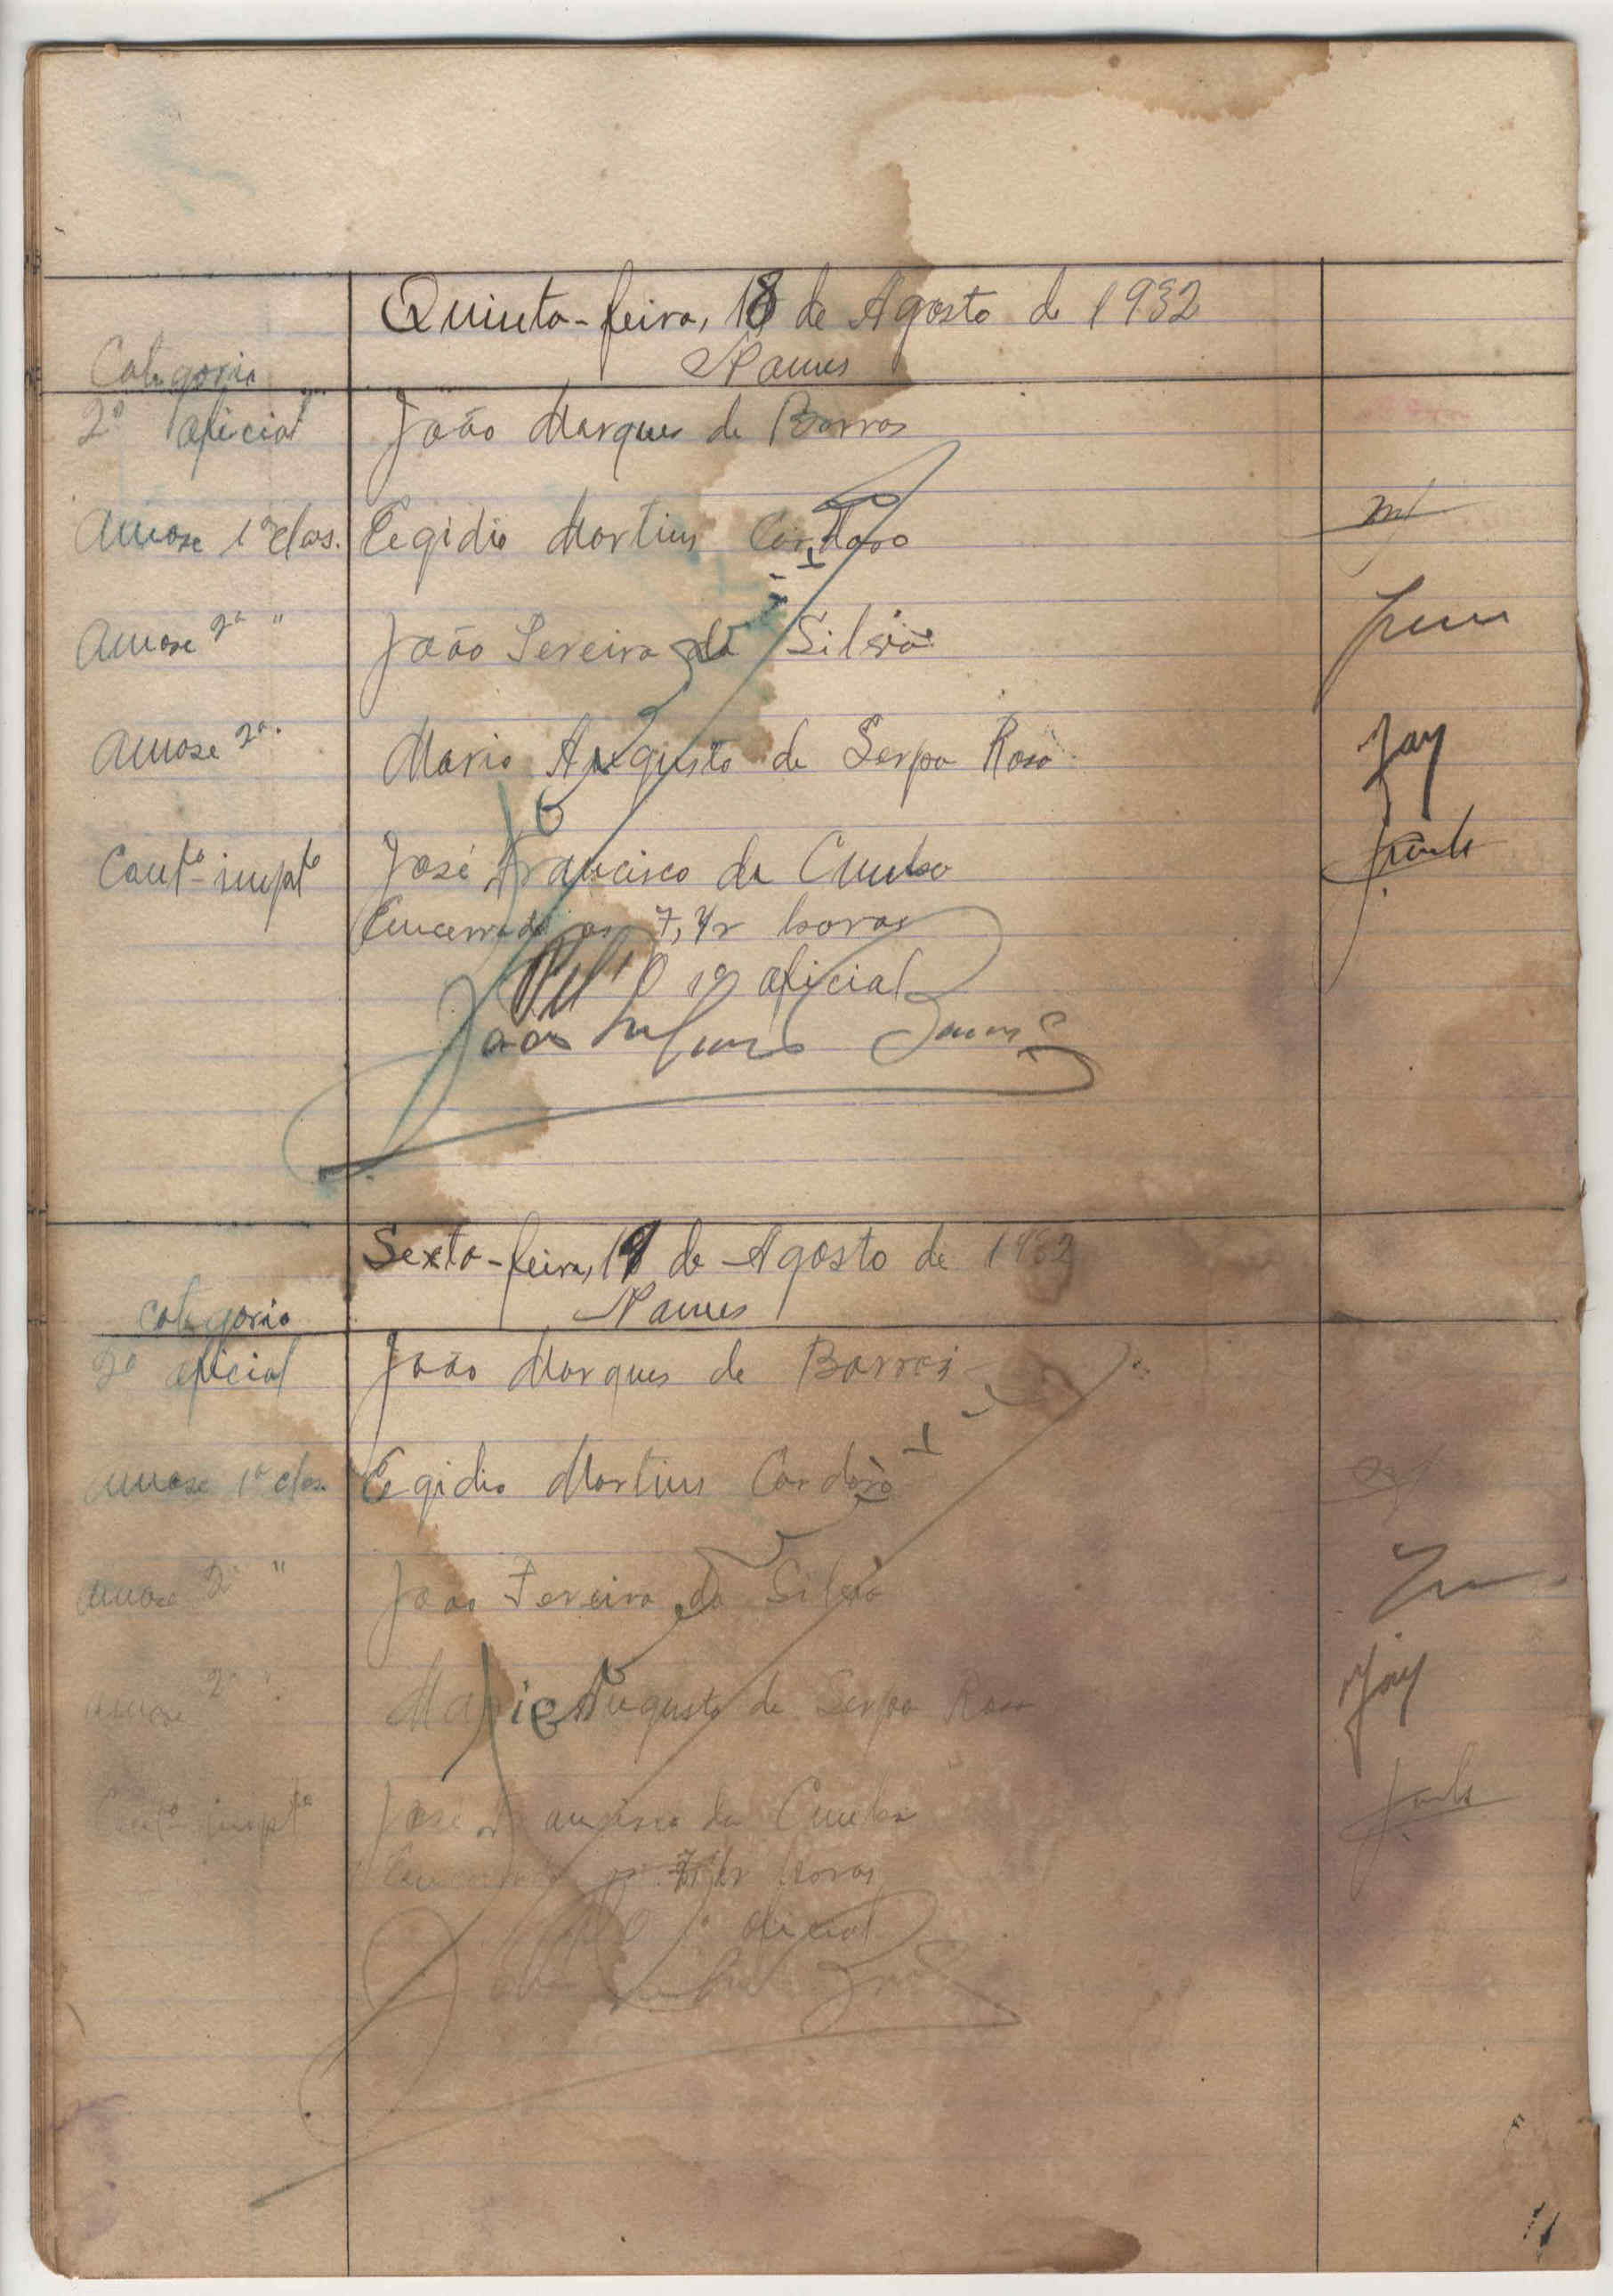 Quinta-feira, 18 de Agosto de 1932
Categoria Nomes
2º oficial João Marques de Barros
Amose 1ª clas. Egidio Martins Cardoso
Amose 2ª " João Pereira da Silva
Amose 2ª " Mario Augusto de Serpa Rosa
Contº impto José Francisco da Cunha
Encerrado as 7,1/2 horas
O 2º oficial
João Barros
Sexta-feira, 19 de Agosto de 1932
Categoria Nomes
2º oficial João Marques de Barros
Amose 1ª clas. Egidio Martins Cardoso
Amose 2ª " João Pereira da Silva
Amose 2ª " Mario Augusto de Serpa Rosa
Contº impto José Francisco da Cunha
Encerrado as 7,1/2 horas
O oficial